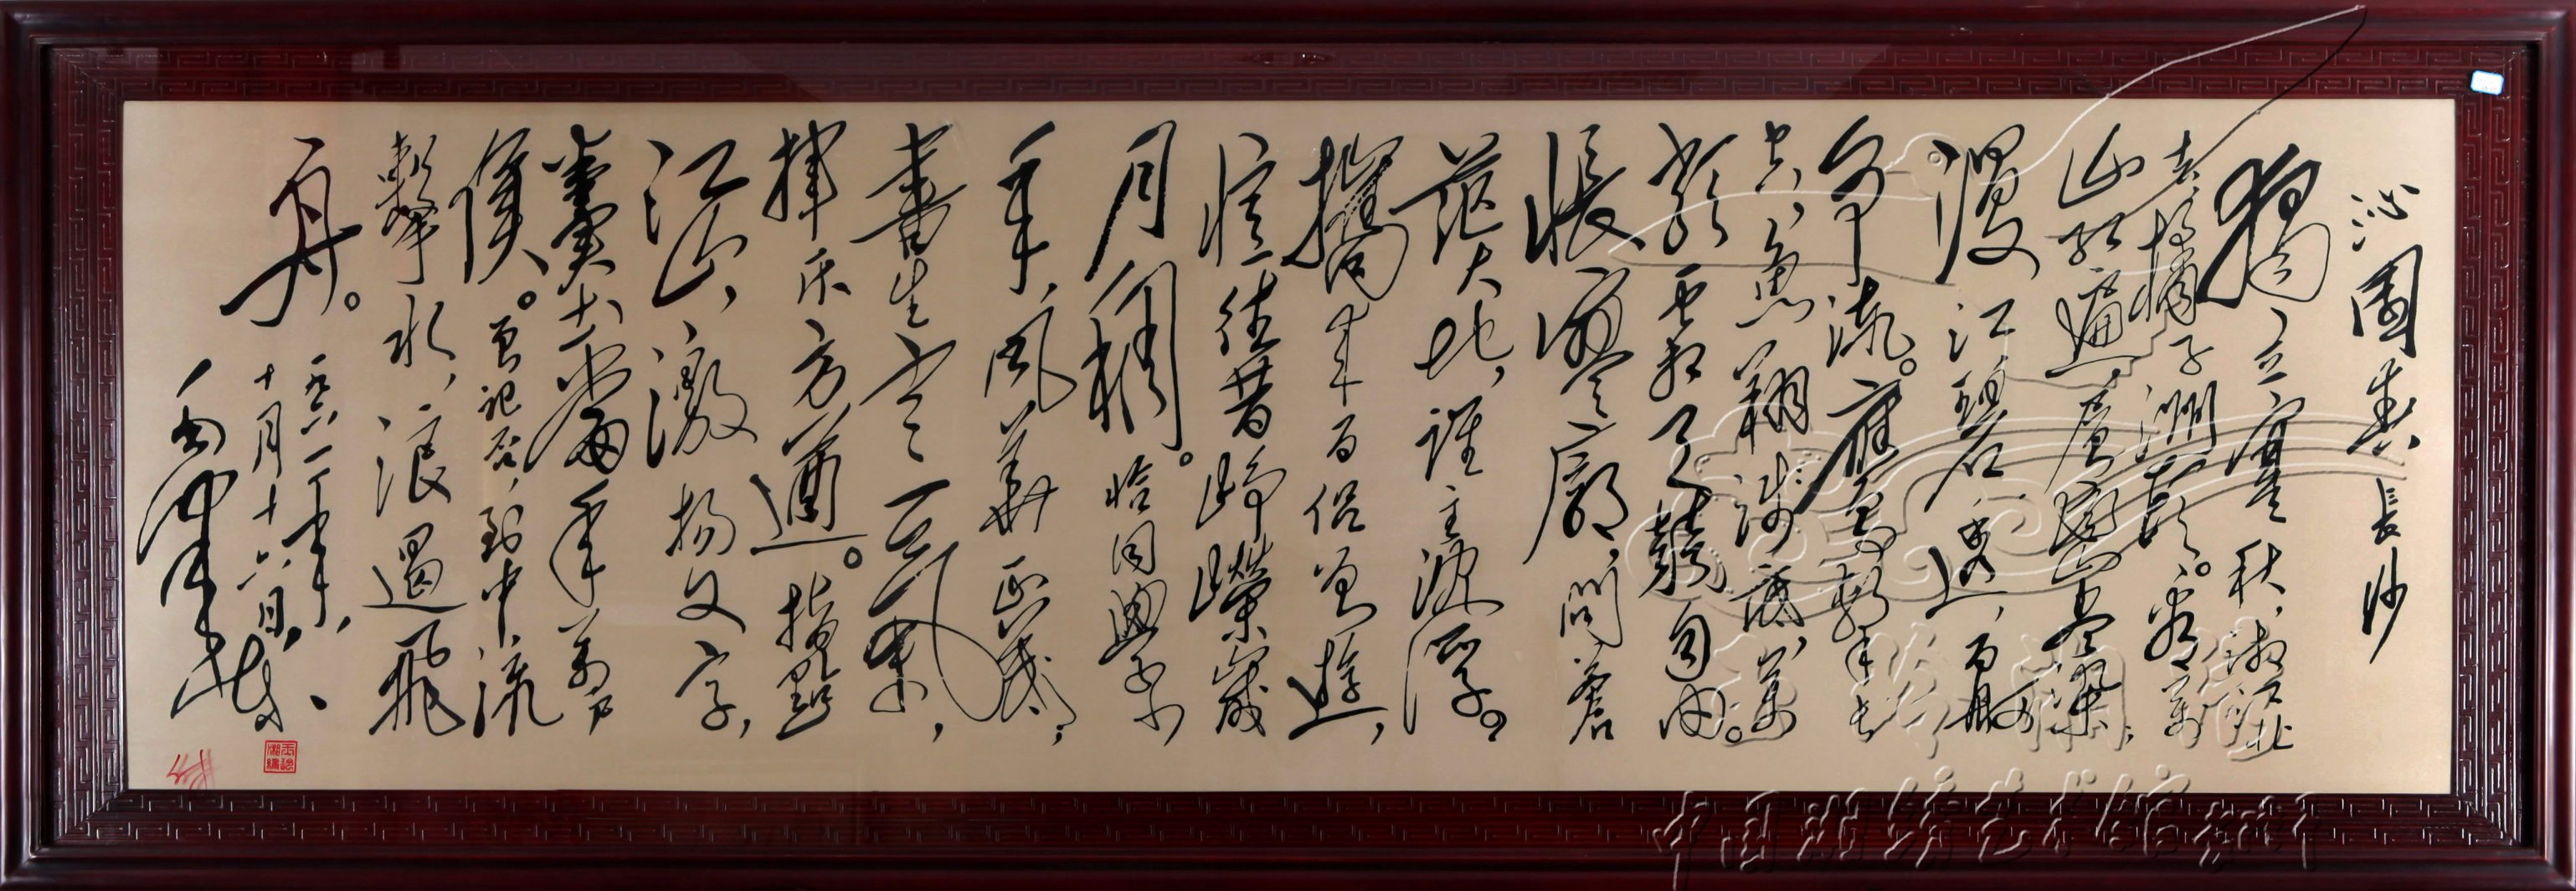 沁園春 長沙
獨立寒秋,湘江北
去,橘子洲頭。看萬
山紅遍,層林盡染;
漫江碧透,百舸
爭流。鷹擊長
空,魚翔淺底,萬
類霜天競自由。
悵寥廓,問蒼
茫大地,誰主沉浮。
攜來百侶曾遊,
憶往昔崢嶸歲
月稠。恰同學少
年,風華正茂;
書生意氣,
揮斥方遒。指點
江山,激揚文字,
糞土當年萬戶
侯。曾記否,到中流
擊水,浪遏飛
舟。
一九六一年,
十月十六日。
毛澤東
中国湘绣艺术馆